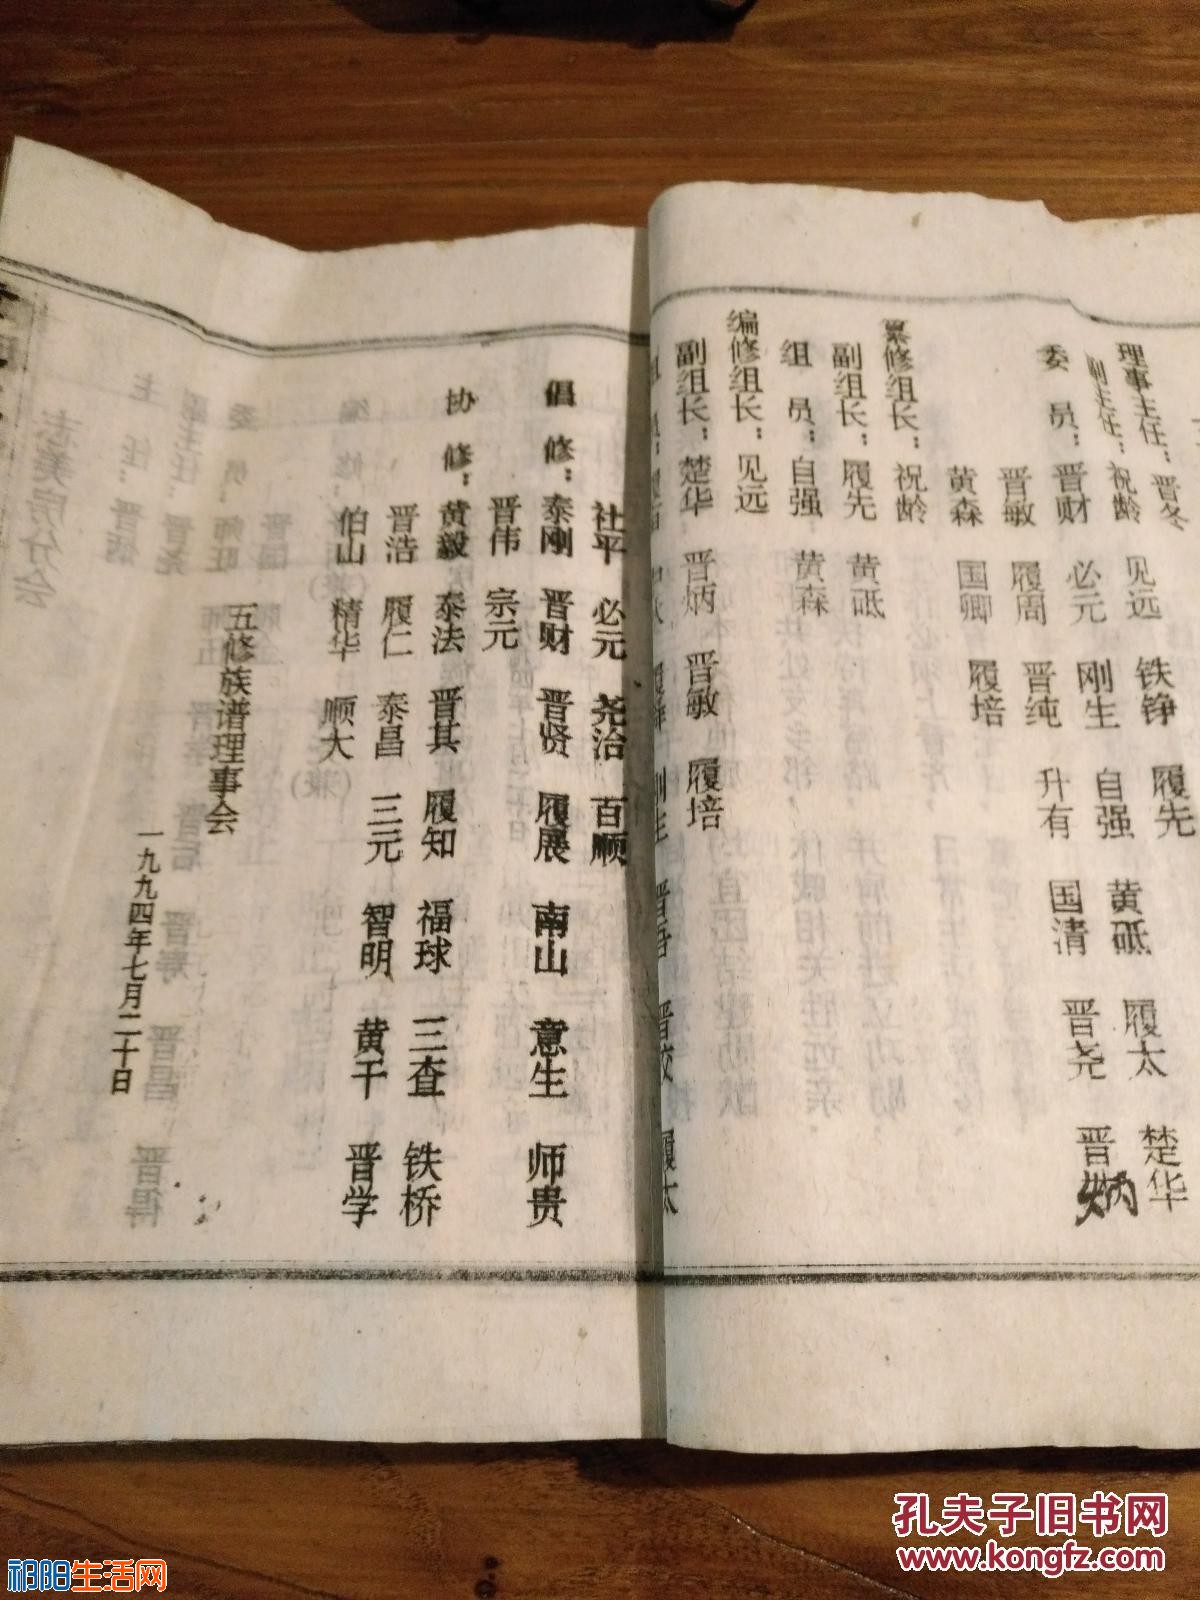 理事主任：晋冬
副主任：祝龄 见远 铁铮 履先 黄砥 履太 楚华
委员：晋财 必元 刚生 自强 国清 晋尧 晋炳
晋敏 履周 晋纯 升有
黄森 国卿 履培
纂修组长：祝龄
副组长：履先 黄砥
组员：自强 黄森
编修组长：见远
副组长：楚华 晋炳 晋敏 履培
社平 必元 尧治 百顺
倡修：泰刚 晋财 晋贤 履展 南山 意生 师贵
晋伟 宗元
协修：黄毅 泰法 晋其 履知 福球 三查 铁桥
晋浩 履仁 泰昌 三元 智明 黄干 晋学
伯山 精华 顺大
五修族谱理事会
一九九四年七月二十日
孔夫子旧书网
www.kongfz.com
祁阳生活网